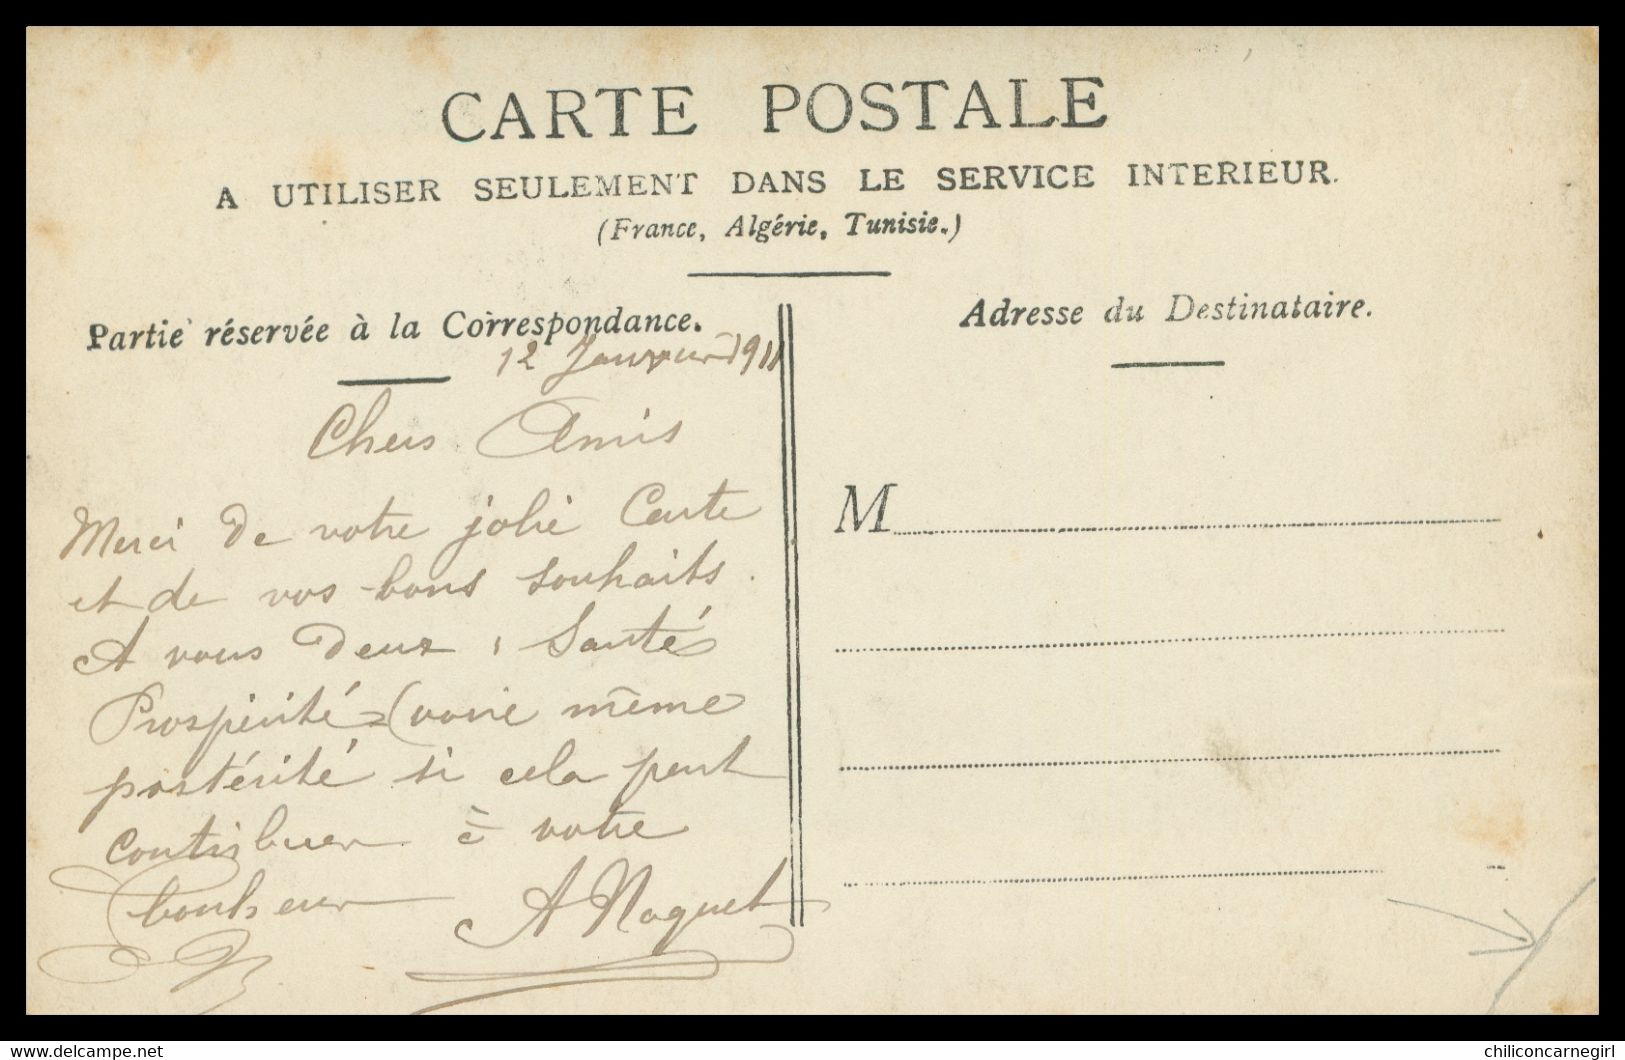 CARTE POSTALE
A UTILISER SEULEMENT DANS LE SERVICE INTERIEUR.
(France, Algérie, Tunisie.)
Partie réservée à la Correspondance.
12 Janvier 1911
Chers Amis
Merci de votre jolie Carte
et de vos bons souhaits.
A vous deux, Santé
Prospérité (voire même
postérité si cela peut
contribuer à votre
bonheur
A Noquet
Adresse du Destinataire.
M
https://www.delcampe.net
chiliconcarnegirl